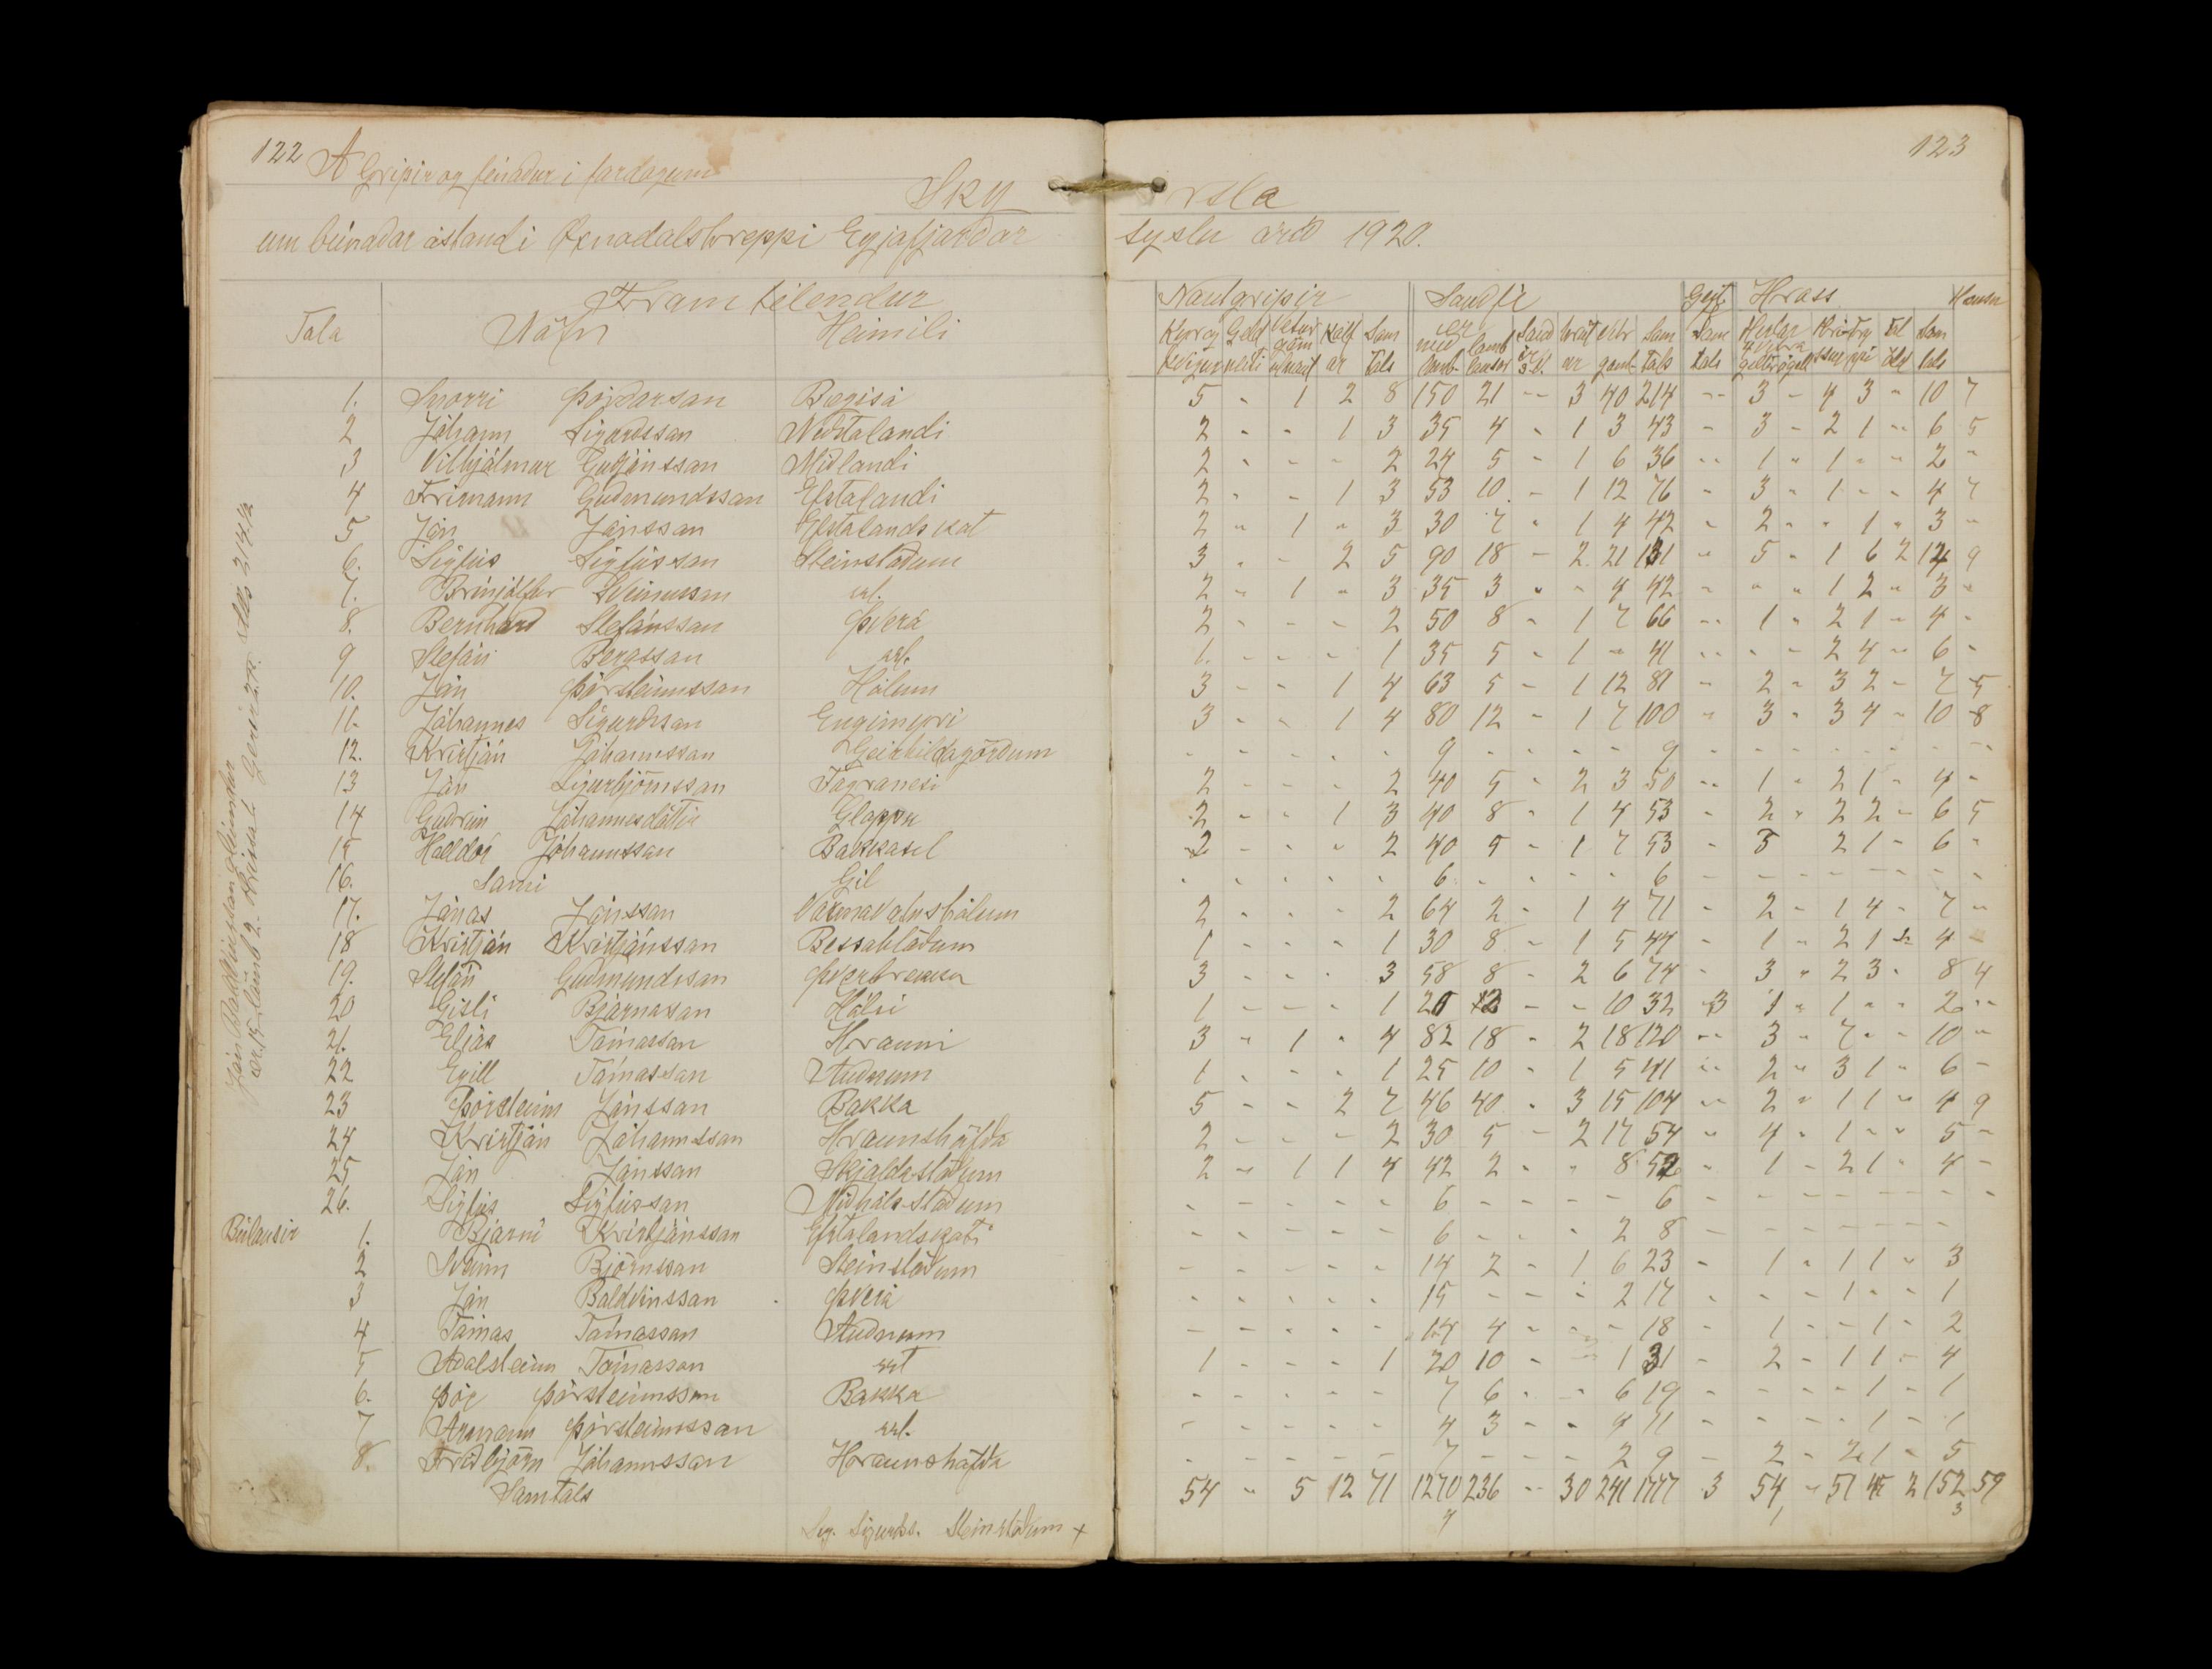 122 A Gripir og fénadur i fardögum
123
Sky rsla
um búnadar ástand i Öxnadalshreppi Eyjafjardar syslu árid 1920.
Framteljendur
Tala Nöfn Heimili
Nautgripir Saudfé Geit Hross Hænsn
1. Snorri Þórdarsan Bægisá 5 " 1 2 8 150 21 -- 3 40 214 -- 3 - 4 3 - 10 7
2 Jóhann Sigurdssan Nedstalandi 2 - - 1 3 35 4 - 1 3 43 - 3 - 2 1 - 6 5
3 Vilhjálmur Gudjónssan Midlandi 2 - - - 2 24 5 - 1 6 36 -- 1 - 1 - - 2 -
4 Frimann Gudmundssan Efstalandi 2 - - 1 3 53 10 - 1 12 76 - 3 - 1 - - 4 7
5 Jón Jónssan Efstalandskot 2 - 1 - 3 30 7 - 1 4 42 - 2 - - 1 - 3 -
6. Sigfús Sigfússan Steinstödum 3 - - 2 5 90 18 - 2 21 131 - 5 - 1 6 2 14 9
7. Brinjólfur Sveinssan sst. 2 - 1 - 3 35 3 - - 4 42 - - - 1 2 - 3 -
8. Bernhard Stefánssan Þverá 2 - - - 2 50 8 - 1 7 66 -- 1 - 2 1 - 4 -
9 Stefán Bergssan sst. 1. - - - 1 35 5 - 1 - 41 -- - - 2 4 - 6 -
10. Jón Þórsteinssan Hólum 3 - - 1 4 63 5 - 1 12 81 - 2 - 3 2 - 7 5
11. Jóhannes Sigurdssan Engimyri 3 - - 1 4 80 12 - 1 7 100 - 3 - 3 4 - 10 8
12. Kristján Jóhannssan Geirhildagördum - - - - - 9 - - - - 9 - - - - - - - -
13 Jón Sigurbjörnssan Fagranesi 2 - - - 2 40 5 - 2 3 50 -- 1 - 2 1 - 4 -
14 Gudrún Jóhannesdóttir Gloppu 2 - - 1 3 40 8 - 1 4 53 - 2 - 2 2 - 6 5
15 Halldór Jóhannssan Bakkasel 2 - - - 2 40 5 - 1 7 53 - 3 2 1 - 6 -
16. Sami Gil - - - - - 6 - - - - 6 - - - - - - - -
17. Jónas Jónssan Varmavatnshólum 2 - - - 2 64 2 - 1 4 71 - 2 - 1 4 - 7 -
18 Kristján Kristjánssan Bessahlödum 1 - - - 1 30 8 - 1 5 44 - 1 - 2 1 - 4 -
19. Stefán Gudmundssan Þverbrekka 3 - - - 3 58 8 - 2 6 74 - 3 - 2 3 - 8 4
20 Gisli Bjarnasan Hóli 1 - - - 1 20 12 - - 10 32 3 1 - 1 - - 2 --
21. Eljas Tómassan Hrauni 3 - 1 - 4 82 18 - 2 18 120 -- 3 - 7 - - 10 -
22 Egill Tómassan Audnum 1 - - - 1 25 10 - 1 5 41 -- 2 - 3 1 - 6 -
23 Þórsteinn Jónssan Bakka 5 - - 2 7 46 40 - 3 15 104 -- 2 - 1 1 - 4 9
24 Kristján Jóhannssan Hraunshöfda 2 - - - 2 30 5 - 2 17 54 - 4 - 1 - - 5 -
25 Jón Jónssan Skjaldastödum 2 - 1 1 4 42 2 - - 8 52 - 1 - 2 1 - 4 -
26. Sigfús Sigfússan Midhálsstödum - - - - - 6 - - - - 6 - - - - - - - -
Búlausir 1. Bjarni Kristjánssan Efstalandskoti - - - - - 6 - - - 2 8 - - - - - - -
2 Sveinn Björnssan Steinstödum - - - - - 14 2 - 1 6 23 - 1 - 1 1 - 3
3 Jón Baldvinssan Þverá - - - - - 15 - - - 2 17 - - - 1 - - 1
4 Tómas Tómassan Audnum - - - - - 14 4 - - - 18 - 1 - - 1 - 2
5 Adalsteinn Tómassan sst 1 - - - 1 20 10 - - 1 31 - 2 - 1 1 - 4
6. Þór Þórsteinssan Bakka - - - - - 7 6 - - 6 19 - - - - 1 - 1
7 Armann Þórsteinssan sst. - - - - - 4 3 - - 4 11 - - - - 1 - 1
8. Fridbjörn Jóhannssan Hraunshöfda - - - - - 7 - - - 2 9 - 2 - 2 1 - 5
Samtals 54 - 5 12 71 1270 236 -- 30 241 1777 3 54 - 51 45 2 152 59
Sig. Sigurds. Steinstödum +